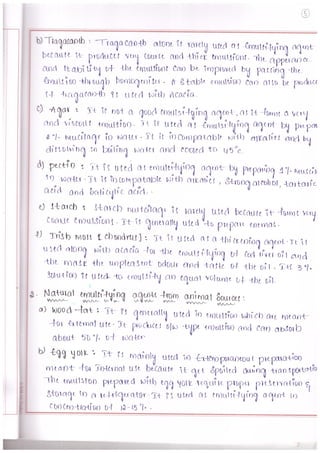 5
b) Tragacanth : Tragacanth alone is rarely used as emulsifying agent
because it produces very course and thick emulsions. The appearance
and stability of the emulsions can be improved by passing the
emulsion through homogenizer. A stable emulsion can also be produce
if tragacanth is used with acacia.
c) Agar : It is not a good emulsifying agent, as it forms a very
and viscous emulsion. It is used as emulsifying agent by prepar
2% mucilage in water. It is incompatable with alkalies and by
dissolving in boiling water and cooled to 45°c.
d) pectin : It is used as emulsifying agent by preparing 1% mucila
in water. It is incompatable with alkalies, strong alcohol, tartaric
acid and salicylic acid.
e) Starch : Starch mucilage is rarely used because it forms very
coarse emulsions. It is generally used to prepare enemas.
f) Irish moss [chondrus] : It is used as a thickening agent. It is
used along with acacia for the emulsifying of cod liver oil and
the mask the unpleasent odour and taste of the oil. Its 3%
solution is used to emulsify an equal volume of the oil.
2. Natural emulsifying agents from animal sources :
a) wood-fat : It is generally used in emulsion which are meant
for external use. It produces o/w type emulsion and can absorb
about 50% of water
b) Egg yolk : It is mainly used in Extemporaneous preparation
meant for internal use because it get spoiled during transportatio
The emulsion prepared with egg yolk require proper preservation &
storage in a refrigerator. It is used as emulsifying agent in
concentration of 12-15%.